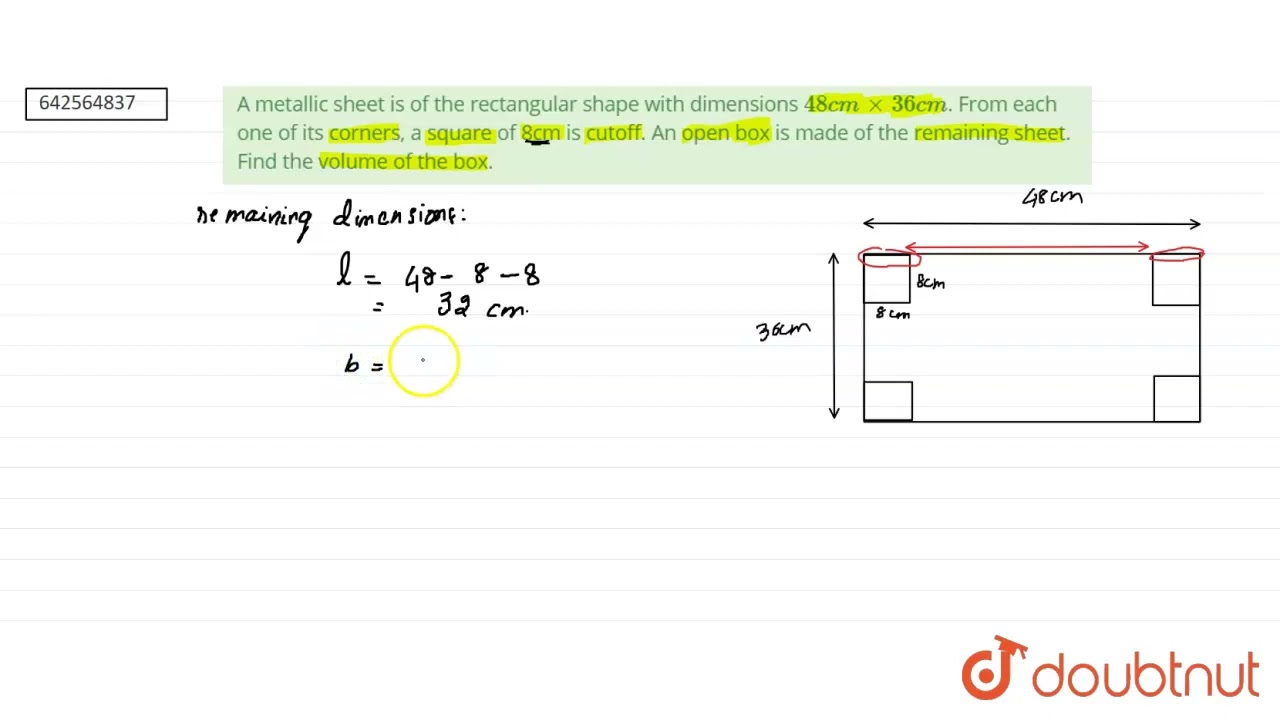 642564837
A metallic sheet is of the rectangular shape with dimensions 48cm × 36cm. From each
one of its corners, a square of 8cm is cutoff. An open box is made of the remaining sheet.
Find the volume of the box.
remaining dimensions:
l = 48 - 8 - 8
= 32 cm.
b =
48cm
8cm
8cm
36cm
doubtnut